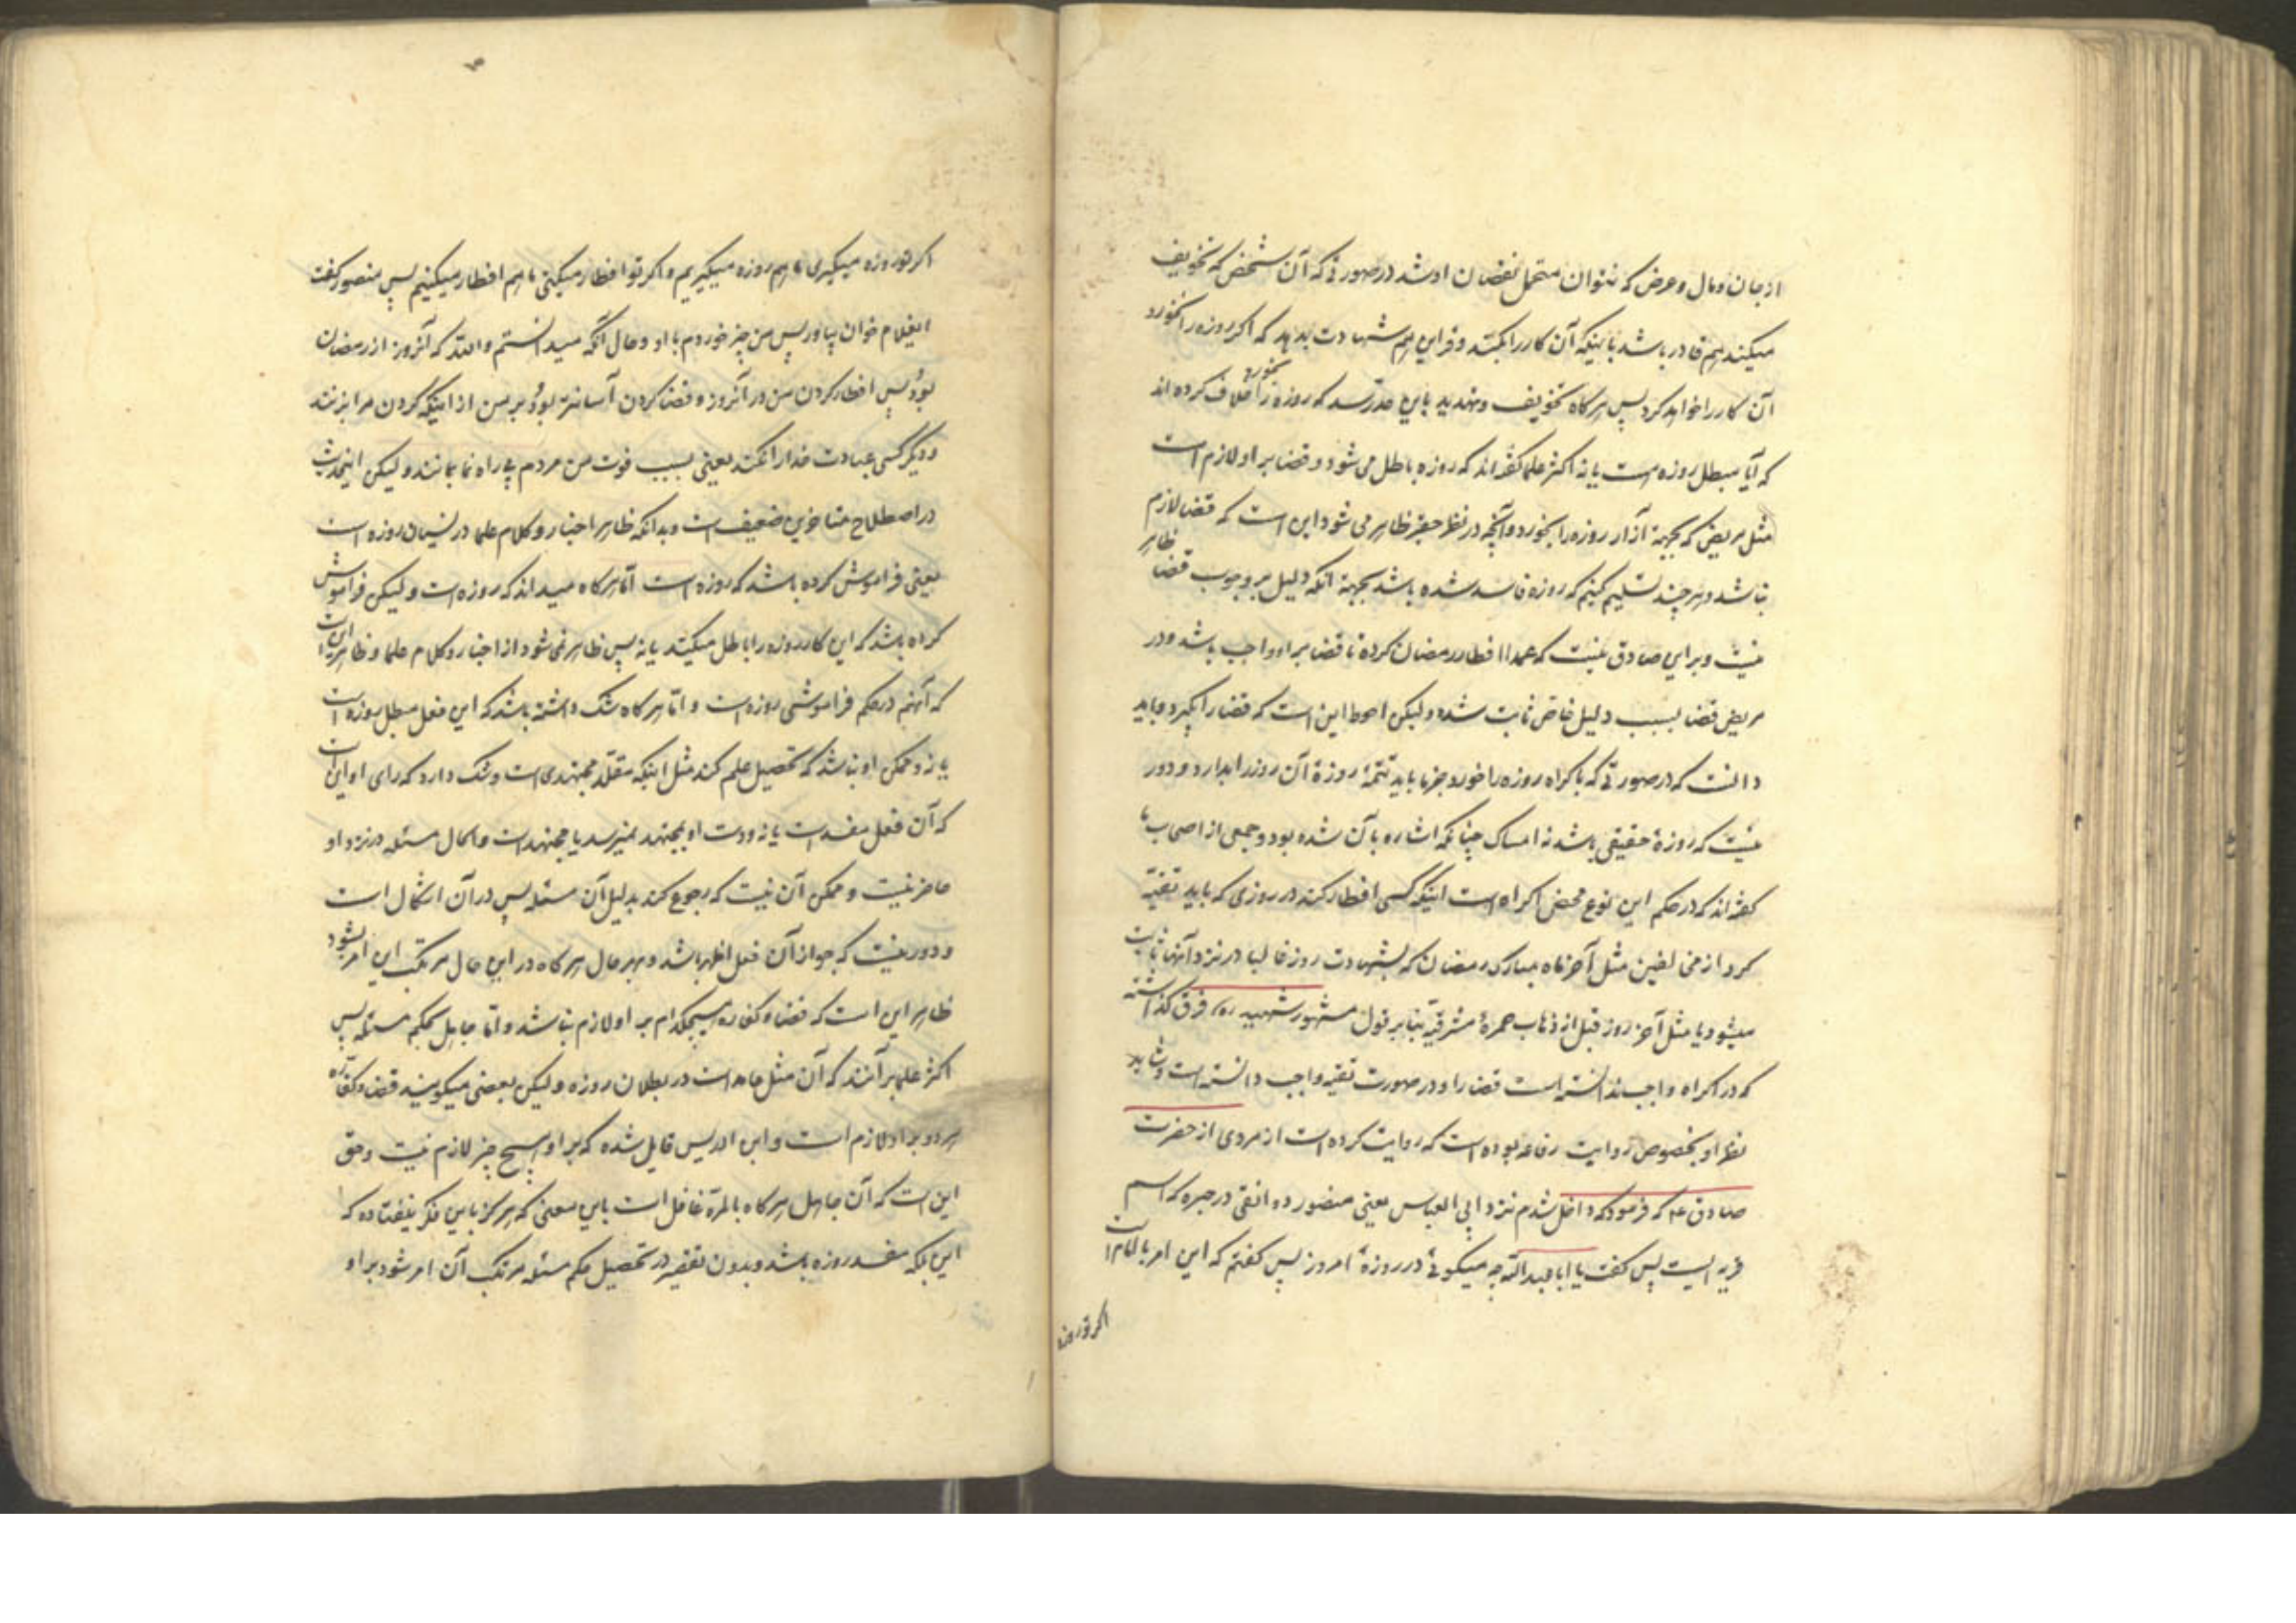 از جان و مال و عرض که نتوان متحمل نقصان او شد در صورتی که آن شخص که تخویف
میکند هم قادر باشد باینکه آن کار را بکند و قراین هم شهادت بدهد که اگر روزه را نخورد
آن کار را خواهد کرد پس هرگاه تخویف و تهدید باین حد رسد که روزه را بخورد خلاف کرده اند
که آیا مبطل روزه است یا نه اکثر علما گفته اند که روزه باطل می شود و قضا بر او لازم است
مثل مریض که بجهة آزار روزه را بخورد و آنچه در نظر حقیر ظاهر می شود این است که قضا لازم
نباشد و هر چند تسلیم کنیم که روزه فاسد شده باشد بجهة آنکه دلیل بر وجوب قضا ظاهر
نیست و بر این صادق نیست که عمدا افطار رمضان کرده تا قضا بر او واجب باشد و در
مریض قضا بسبب دلیل خاص ثابت شده و لیکن احوط این است که قضا را بگیرد و باید
دانست که در صورتی که باکراه روزه را خورد جزما باید تتمۀ روزۀ آن روز را بدارد و دور
نیست که روزۀ حقیقی باشد نه امساک چنانکه اشاره بآن شده بود و جمعی از اصحاب ما
گفته اند که در حکم این نوع محض اکراه است اینکه کسی افطار کند در روزی که باید تقیّه
کرد از مخالفین مثل آخر ماه مبارک رمضان که بشهادت روز غالبا در نزد آنها ثابت
میشود یا مثل آخر روز قبل از ذهاب حمرۀ مشرقیّه بنا بر قول مشهور شهید ره فرق گذاشته
که در اکراه واجب ندانسته است قضا را و در صورت تقیه واجب دانسته است و شاید
نظر او بخصوص روایت رفاعه بوده است که روایت کرده است از مردی از حضرت
صادق ع که فرمود که داخل شدم نزد ابی العباس یعنی منصور دوانقی در حیره که اسم
قریه ایست پس گفت یا ابا عبدالله چه میگوئی در روزۀ امروز پس گفتم که این امر با امام است
اگر تو روزه
اگر تو روزه میگیری ما هم روزه میگیریم و اگر تو افطار میکنی ما هم افطار میکنیم پس منصور گفت
ایغلام خوان بیاور پس من چیز خوردم با او و حال آنکه میدانستم والله که آنروز از رمضان
بود پس افطار کردن من در آنروز و قضا کردن آسانتر بود بر من از اینکه گردن مرا بزنند
و دیگر کسی عبادت خدا را نکند یعنی بسبب فوت من مردم بی راه نما بمانند و لیکن اینحدیث
در اصطلاح متاخرین ضعیف است و بدانکه ظاهر اخبار و کلام علما در نسیان روزه است
یعنی فراموش کرده باشد که روزه است اما هرگاه میداند که روزه است و لیکن فراموش
کرده باشد که این کار روزه را باطل میکند یا نه پس ظاهر نمی شود از اخبار و کلام علما و ظاهر این است
که آنهم در حکم فراموشی روزه است و امّا هرگاه شک داشته باشد که این فعل مبطل روزه است
یا نه و ممکن او نباشد که تحصیل علم کند مثل اینکه مقلّد مجتهدی است و شک دارد که رای او این است
که آن فعل مفسد است یا نه و دست او بمجتهد نمیرسد یا مجتهد است و الحال مسئله در نزد او
حاضر نیست و ممکن آن نیست که رجوع کند بدلیل آن مسئله پس در آن اشکال است
و دور نیست که جواز آن فعل اظهر باشد و بهر حال هرگاه در این حال مرتکب این امر بشود
ظاهر این است که قضا و کفاره هیچکدام بر او لازم نباشد و امّا جاهل بحکم مسئله پس
اکثر علما بر آنند که آن مثل عامد است در بطلان روزه و لیکن بعضی میگویند قضا و کفّاره
هر دو بر او لازم است و ابن ادریس قایل شده که بر او هیچ چیز لازم نیست و حق
این است که آن جاهل هرگاه بالمرّة غافل است باین معنی که هرگز باین فکر نیفتاده که
این بلکه مفسد روزه باشد و بدون تقصیر در تحصیل حکم مسئله مرتکب آن امر شود بر او